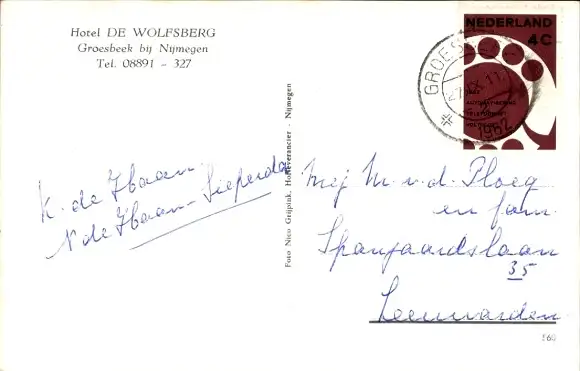 Hotel DE WOLFSBERG
Groesbeek bij Nijmegen
Tel. 08891 - 327
K. de Haan
N de Haan-Sieperda
Foto Nico Grijpink, Hofleverancier - Nijmegen
NEDERLAND
4C
1962
AUTOMATISERING
TELEFOONNET
GROES
1962
Mej M. v. d. Ploeg
en fam.
Spanjaardslaan
35
Leeuwarden
560